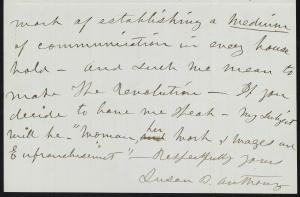 work of establishing a medium
of communication in every house
hold – and such we mean to
make The Revolution – If you
decide to have me speak – my subject
will be "Woman, her work & wages and
Enfranchisement" – Respectfully yours
Susan B. Anthony